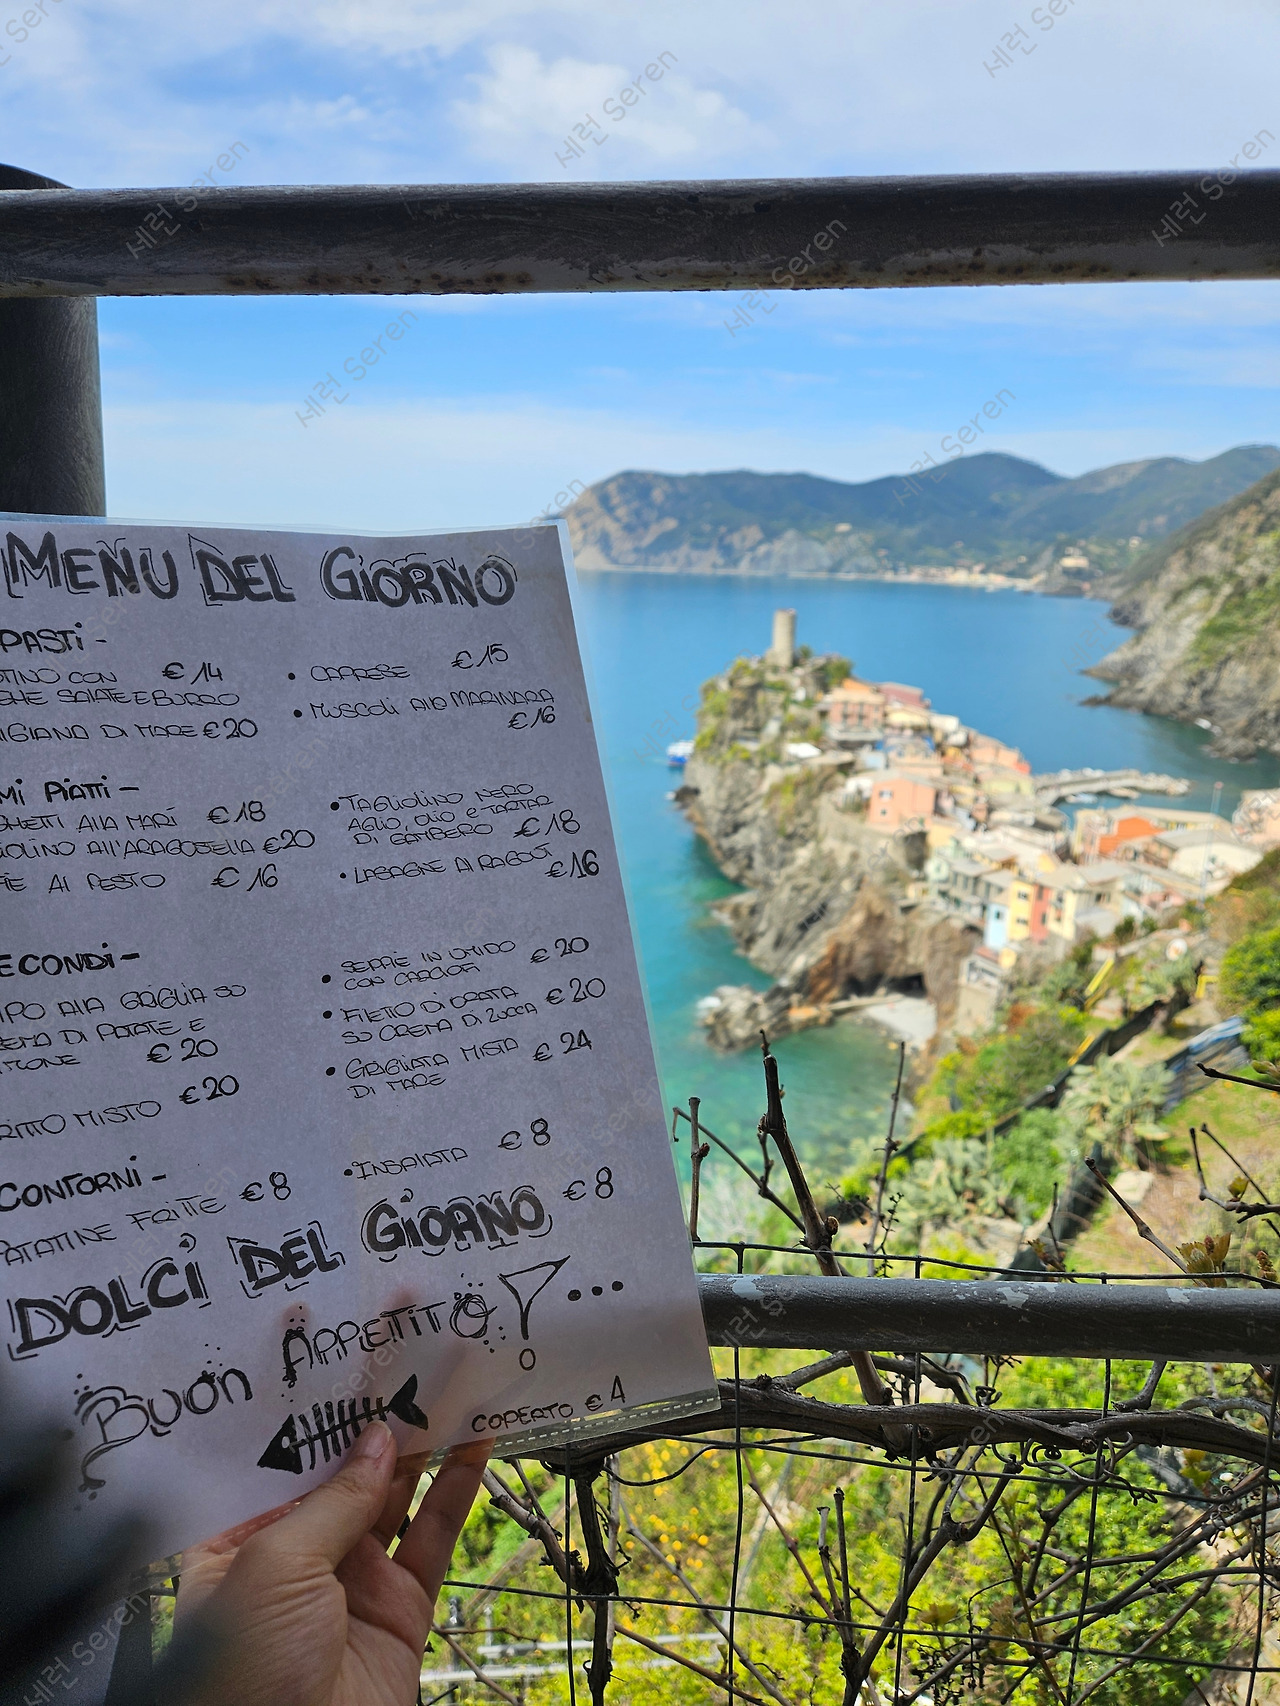 MENU DEL GIORNO
PASTI -
TINO CON €14
GHE SALATE E BURRO
IGIANA DI MARE €20
• CAPRESE €15
• MUSCOLI ALLA MARINARA
€16
MI PIATTI -
GHETTI ALLA MARI €18
IOLINO ALL'ARAGOSTELLA €20
FIE AI PESTO €16
• TAGLIOLINO NERO
AGLIO, OLIO e TARTAR
DI GAMBERO €18
• LASAGNE AI RAGOUT
€16
ECONDI -
LPO ALLA GRIGLIA SU
EMA DI PATATE E
€20
RITTO MISTO €20
• SEPPIE IN UMIDO €20
CON CARCIOFI
• FILETO DI ORATA €20
SU CREMA DI ZUCCA
• GRIGLIATA MISTA €24
DI MARE
CONTORNI -
ATATINE FRITTE €8
• INSALATA €8
DOLCI DEL GIORNO €8
BUON APPETITO ...
COPERTO €4
세런 Seren